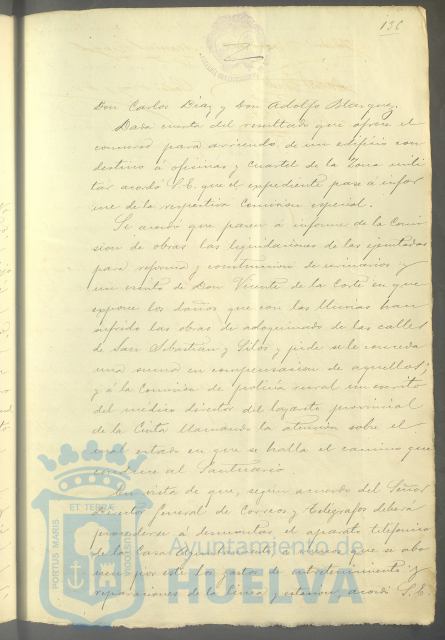 136
Don Carlos Díaz y Don Adolfo Blazquez.
Dada cuenta del resultado que ofrece el
concurso para arriendo de un edificio con
destino á oficinas y cuartel de la Zona mili-
tar acordó S.E. que el expediente pase á infor
me de la respectiva Comision especial.
Se acordó que pasen á informe de la Comi
sion de obras las liquidaciones de las ejecutadas
para reforma y construccion de urinarios y
un escrito de Don Vicente de la Corte en que
expone los daños que con las lluvias han
sufrido las obras de adoquinado de las calles
de San Sebastian y Silos y pide se le conceda
una suma en compensacion de aquellos;
y á la Comision de policía rural un escrito
del médico director del lazareto provincial
de la Cinta llamando la atención sobre el
mal estado en que se halla el camino que
conduce al Santuario.
En vista de que, según acuerdo del Señor
Director General de Correos y Telégrafos deberá
procederse á desmontar el aparato telefónico
de la Casa Ayuntamiento á menos que se abo
nen por este los gastos de entretenimiento y
reparaciones de la linea y estacion, acordó S.E.
Ayuntamiento de
HUELVA
ET TERRÆ
PORTUS MARIS
CUSTODIA